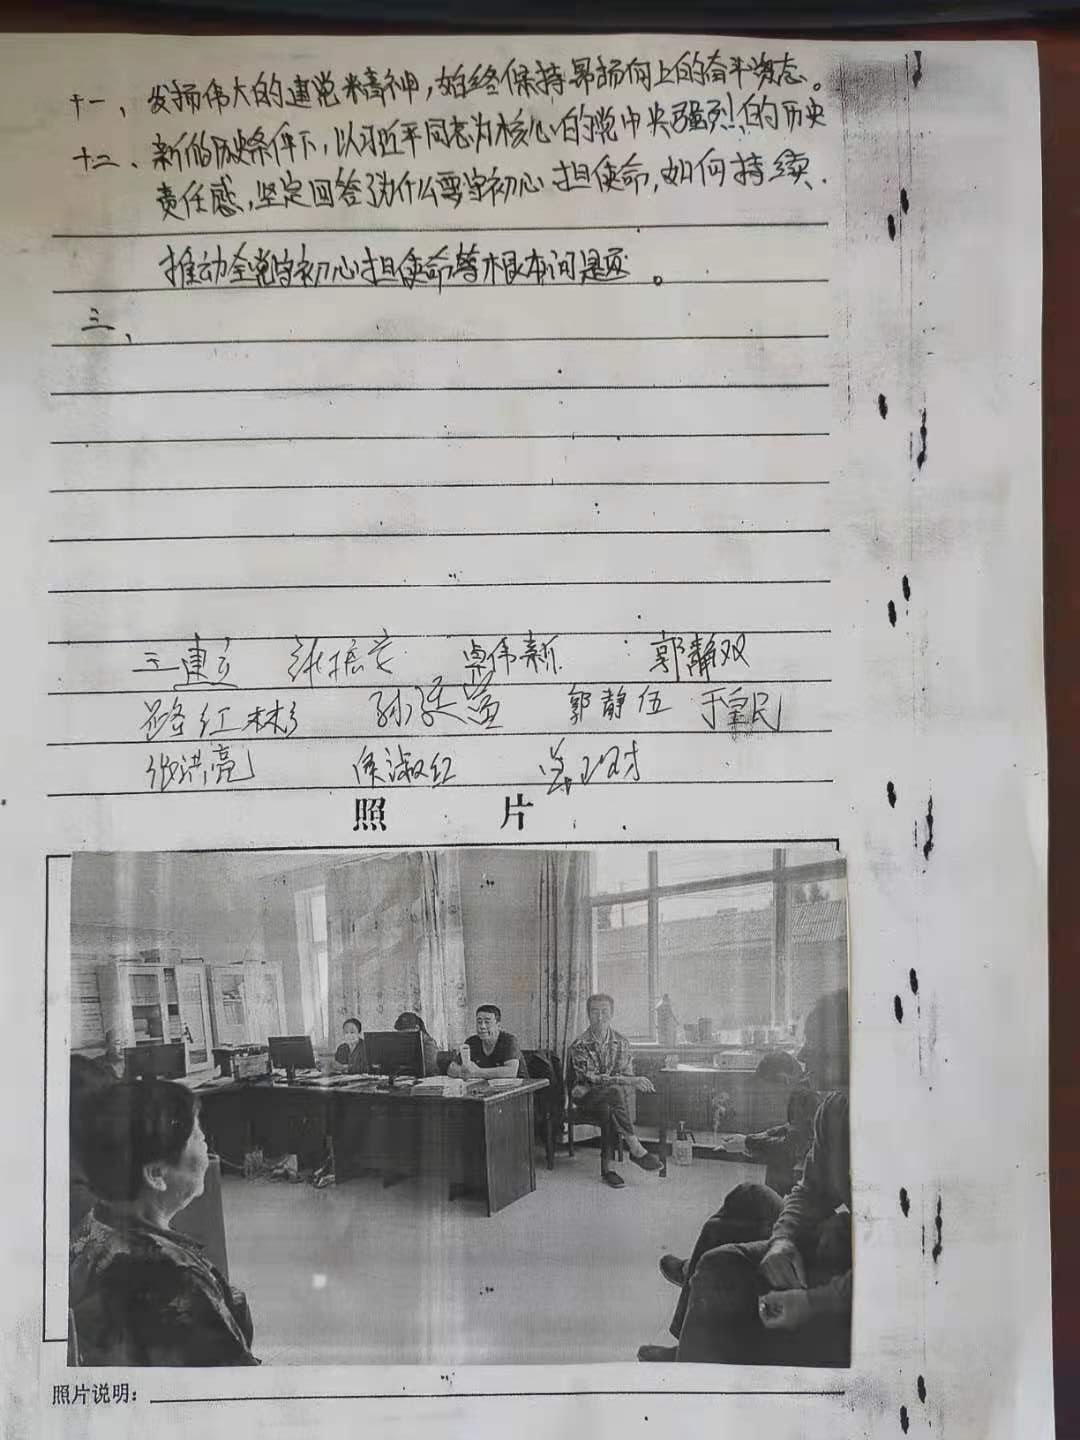 十一、发扬伟大的建党精神，始终保持昂扬向上的奋斗姿态。
十二、新的历史条件下，以习近平同志为核心的党中央强烈的历史
责任感，坚定回答了为什么要守初心担使命，如何持续、
推动全党守初心担使命等根本问题。
三、
王建立 张振安 卓伟新 郭静双
路红彬 孙廷 郭静伍 于皇民
张洪亮 侯淑红
照 片
照片说明：